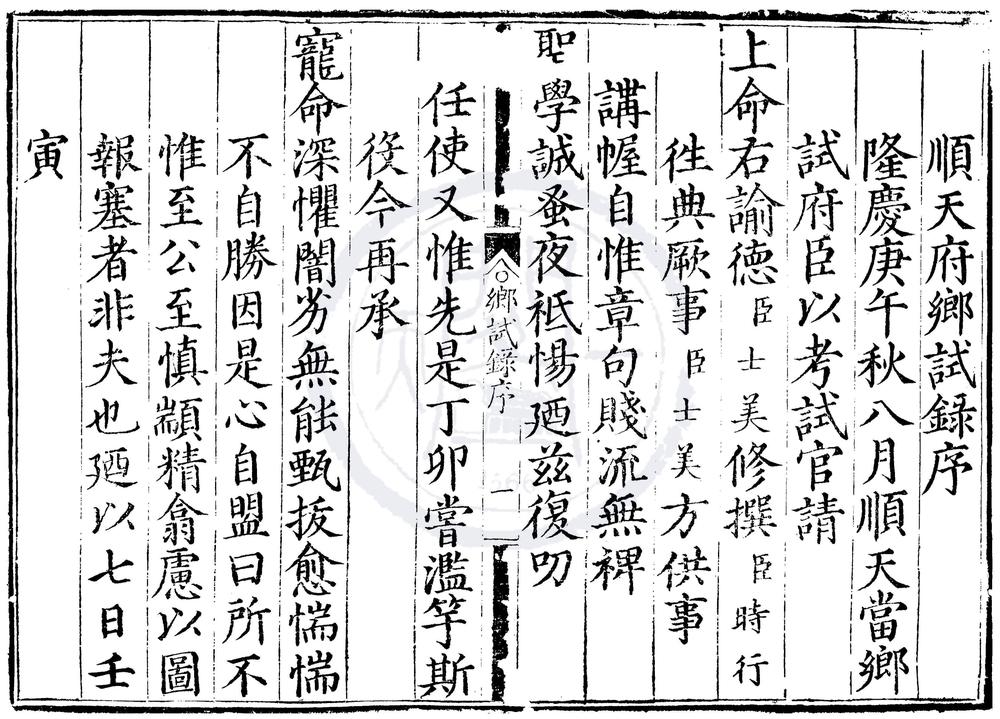 順天府鄉試錄序
隆慶庚午秋八月順天當鄉
試府臣以考試官請
上命右諭德臣士美修撰臣時行
徃典厥事臣士美方供事
講幄自惟章句賤流無裨
聖學誠蚤夜祗惕廼茲復叨
鄉試錄序 一
任使又惟先是丁卯嘗濫竽斯
役今再承
寵命深懼闇劣無能甄拔愈惴惴
不自勝因是心自盟曰所不
惟至公至慎顓精翕慮以圖
報塞者非夫也廼以七日壬
寅